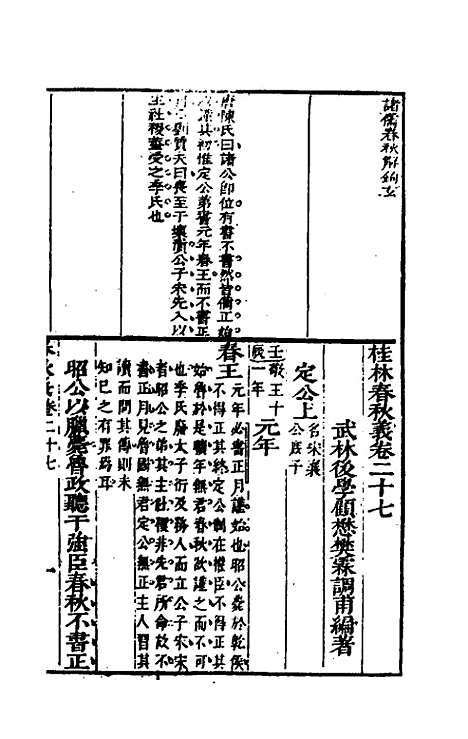 諸儒春秋解鈎玄
陳氏曰諸公即位有書不書然皆備正始
其初惟定公第書元年春王而不書正
劉質夫曰喪至于壞隤公子宋先入以
主社稷蓋受之季氏也
桂林春秋義卷二十七
武林後學顧懋樊霖調甫編著
定公上
名宋襄
公庶子
壬敬王十
辰一年
元年
春王
元年必書正月謹始也昭公薨於乾侯
不得正其終定公制在權臣不得正其
始魯於是曠年無君春秋欲謹之而不可
也季氏廢太子衍及務人而立公子宋宋
者昭公之弟其主社稷非先君所命故不
書正月見魯國無君定公無正主人習其
讀而問其傳則未
知己之有罪焉耳
昭公以臘薨魯政聽于強臣春秋不書正
春秋義卷二十七
一